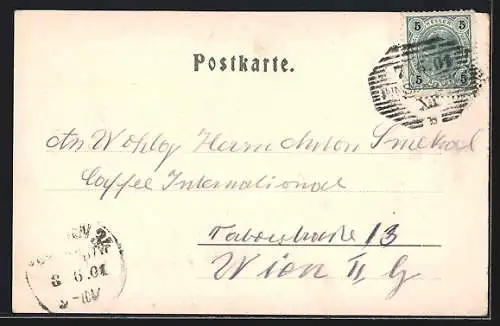 5 HELLER 5
5 5
Postkarte.
7 6 01
XII
An Wohlg Herrn Anton Smekal
Caffee International
Taborstraße 13
Wien II, G
8 6.01